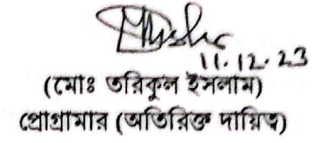 11.12.23
(মোঃ তরিকুল ইসলাম)
প্রোগ্রামার (অতিরিক্ত দায়িত্ব)